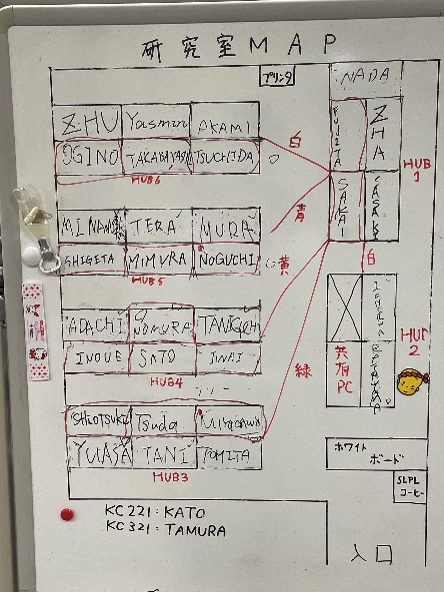 研究室MAP
プリンタ
NADA
ZHU Yasmin AKAMI
白
FUJITA ZHA
OGINO TAKABAYASHI TSUCHIDA
HUB6
HUB1
SAKAI SASAKI
TERA MURA
青
SHIGETA MIMURA NOGUCHI
HUB5
黄
白
ADACHI NOMURA TANIGUCHI
INOUE SATO IMAI
HUB4
緑
共有PC
HUB2
SHIOTSUKI Tsuda
YUASA TANI TOMITA
HUB3
ホワイト
ボード
SLPL
コーヒー
KC221:KATO
KC321:TAMURA
入口